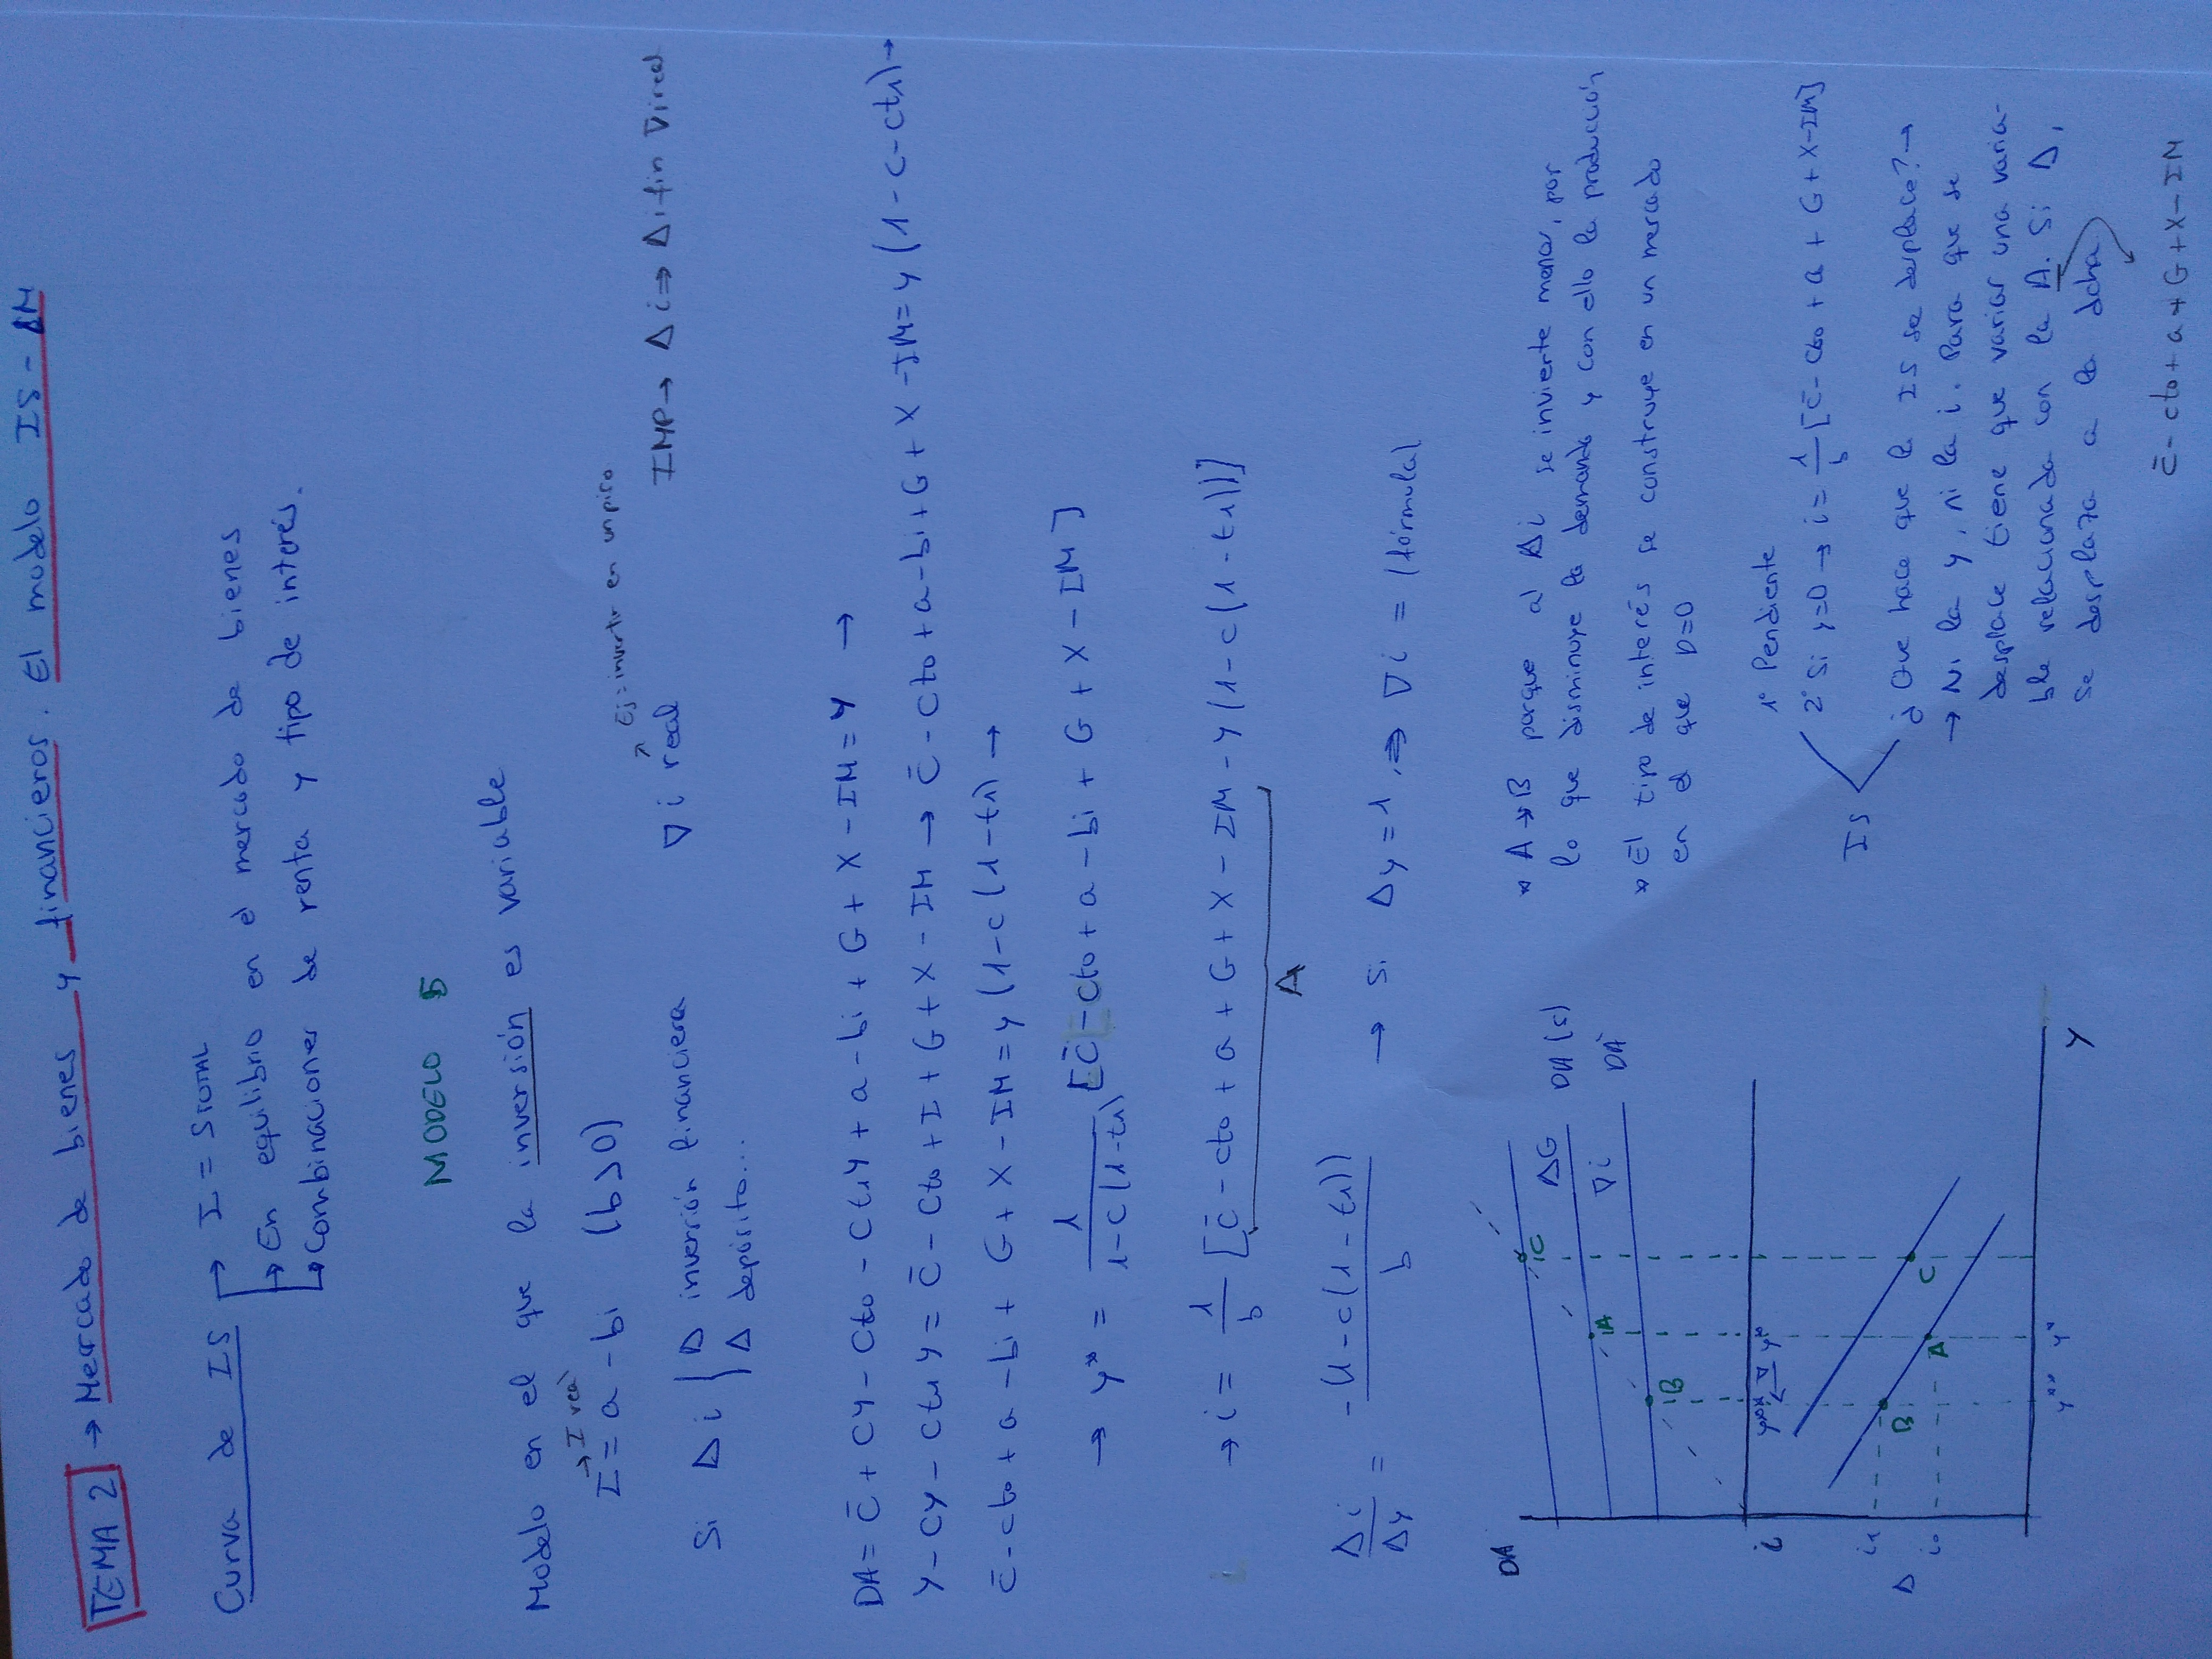 TEMA 2 → Mercado de bienes y financieros. El modelo IS-LM
Curva de IS → I = STOTAL
→ En equilibrio en el mercado de bienes
→ Combinaciones de renta y tipo de interés.
MODELO 5
Modelo en el que la inversión es variable
→ I real
I = a - bi (b>0)
↗ Ej: invertir en un piso
Si Δ i { Δ inversión financiera ∇ i real
Δ depósito...
IMP → Δ i ⇒ Δ i fin ∇ i real
DA = C̄ + cy - cto - ct1y + a - bi + G + X - IM = y →
y - cy - ct1y = C̄ - cto + I + G + X - IM → C̄ - cto + a - bi + G + X - IM = y (1 - c - ct1) →
C̄ - cto + a - bi + G + X - IM = y (1 - c (1 - t1) →
→ y* = 1/(1 - c (1 - t1) [C̄ - cto + a - bi + G + X - IM]
→ i = 1/b [C̄ - cto + a + G + X - IM - y (1 - c (1 - t1))]
A
Δi/Δy = -(1 - c(1 - t1))/b → Si Δy = 1, ⇒ ∇ i = (fórmula)
DA
C
ΔG DA (s)
A
∇ i DA'
B
y** y*
i
i1
Δ
i0
B
A
C
y** y*
y
* A → B porque al Δi se invierte menor, por
lo que disminuye la demanda y con ello la producción
* El tipo de interés se construye en un mercado
en el que D=O
IS
1º Pendiente
2º Si y=0 → i = 1/b [C̄ - cto + a + G + X - IM]
¿Que hace que la IS se desplace? →
→ Ni la y, ni la i. Para que se
desplace tiene que variar una varia-
ble relacionada con la A. Si Δ,
se desplaza a la dcha
C̄ - cto + a + G + X - IM